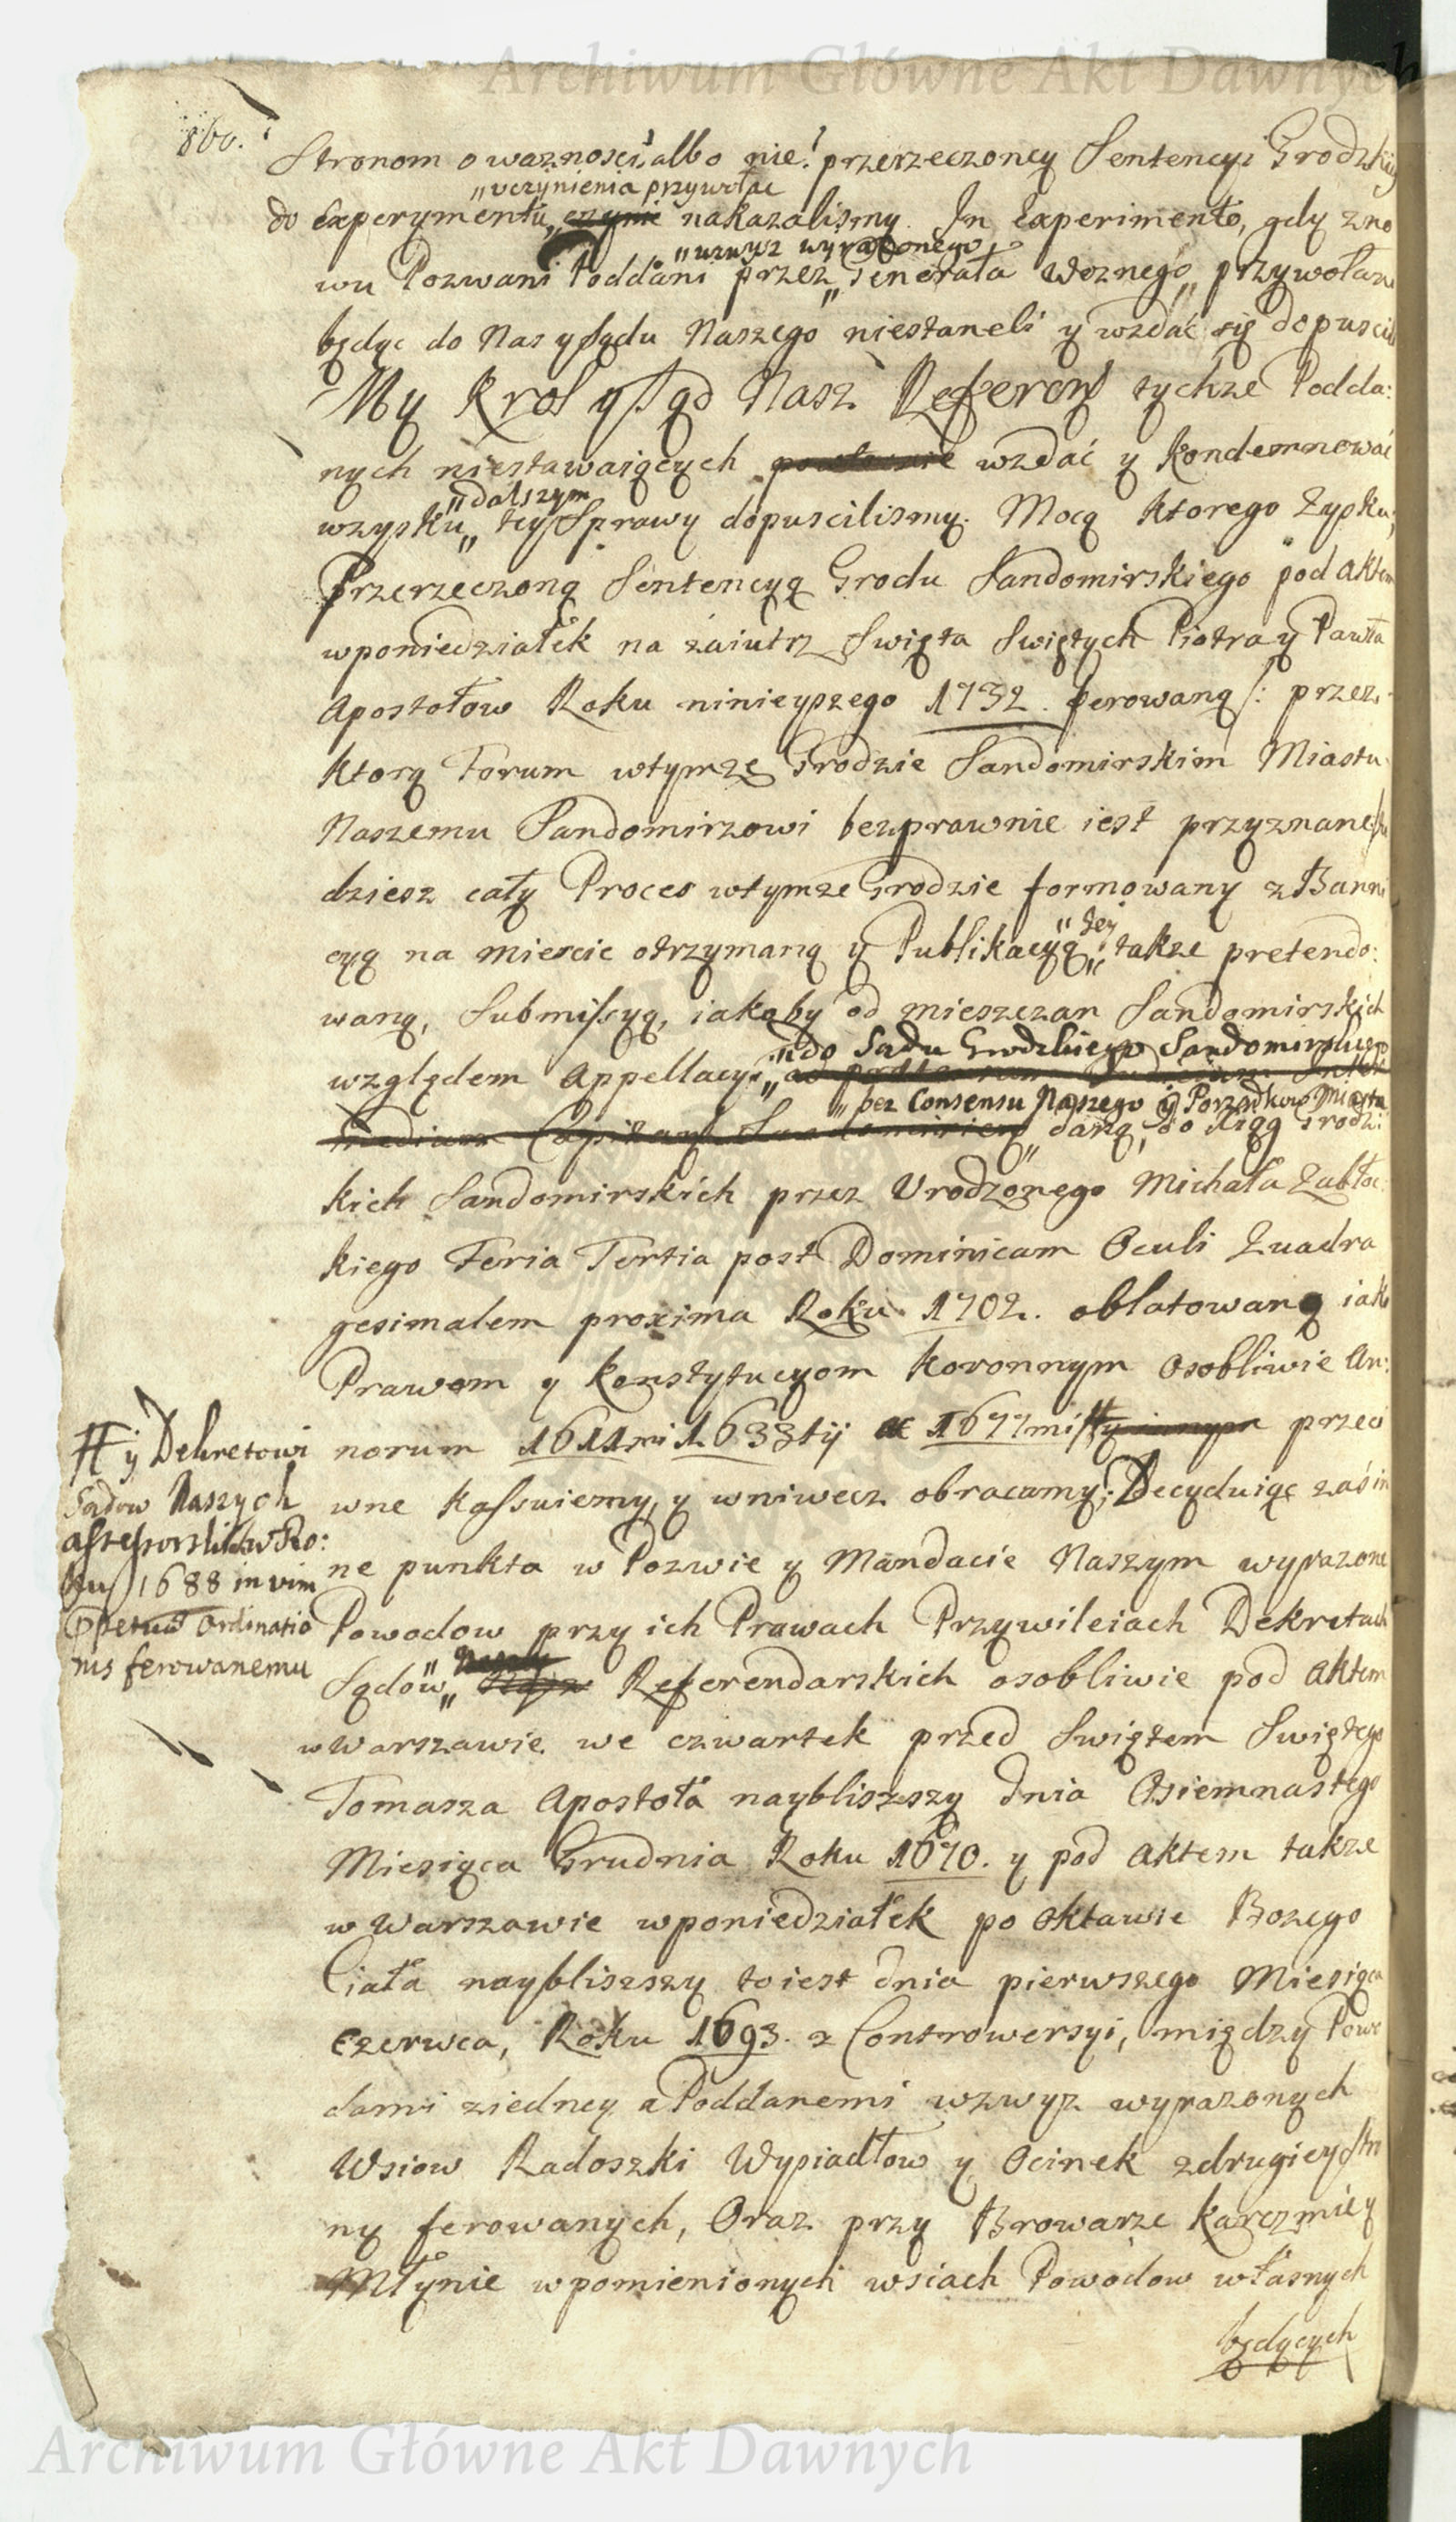 Archiwum Główne Akt Dawnych
860.
Stronom o waznosci albo nie przerzeczoney Sentencyi Grodzkiey
„uczynienia przywołac
do Experymentu, „czynic nakazalismy. In Experimento, gdy zno
„wzwysz wyrazonego
wu Pozwani Poddani przez „Generała Woznego„ przywołani
będąc do Nas y Sądu Naszego niestaneli y wzdać się dopuscili
My Krol y Sąd Nasz Referend tychze Podda:
nych niestawaiących wzdać y kondemnować
„dalszym
wzysku„ tey Sprawy dopuscilismy. Mocą ktorego Zysku,
Przerzeczoną Sentencyą Grodu Sandomirskiego pod Aktem
wponiedziałek na zaiutrz Swięta Swiętych Piotra y Pawła
Apostołow Roku ninieyszego 1732. ferowaną /: przez
ktorą Forum wtymze Grodzie Sandomirskim Miastu
Naszemu Sandomirzowi bezprawnie iest przyznane
dziesz cały Proces wtymze Grodzie formowany z Banni
„tey
cyą na miescie otrzymaną y Publikacyą„ takze pretendo:
waną, Submissyą, iakoby od mieszczan Sandomirskich
„do Sądu Grodzkiego Sandomirskiego
względem Appellacyi„
„bez Consensu Naszego y Porządkow Miasta
Capitan Sandomirien„ daną, do Xiąg Grodz:
kich Sandomirskich przez Urodzonego Michała Zabłoc
kiego Feria Tertia post Dominicam Oculi Quadra
gesimalem proxima Roku 1702. oblatowaną iako
Prawom y Konstytucyom koronnym osobliwie An:
norum 1611mi 1633tij ac 1677mi # y innym przeci
# y Dekretowi
Sądow Naszych
assessorskich w Ro:
ku 1688 in vim
Ppetuæ Ordinatio
nis ferowanemu
wne kassuiemy, y wniwecz obracamy; Decyduiąc zaś in
ne punkta w Pozwie y Mandacie Naszym wyrazone
Powodow przy ich Prawach Przywileiach Dekretach
Sądow„ Referendarskich osobliwie pod Aktem
w Warszawie we czwartek przed Swiętem Swiętego
Tomasza Apostoła naybliszszy dnia Osiemnastego
Miesiąca Grudnia Roku 1670. y pod Aktem takze
w Warszawie wponiedziałek po Oktawie Bozego
Ciała naybliszszy toiest dnia pierwszego Miesiąca
Czerwca, Roku 1693. z Controwersyi, między Powo
dami ziedney a Poddanemi wzwyz wyrazonych
Wsiow Radoszki Wysiadłow y Ocinek zdrugiey Stro
ny ferowanych, Oraz przy Browarze karczmie y
Młynie wpomienionych wsiach Powodow własnych
będących
Archiwum Główne Akt Dawnych